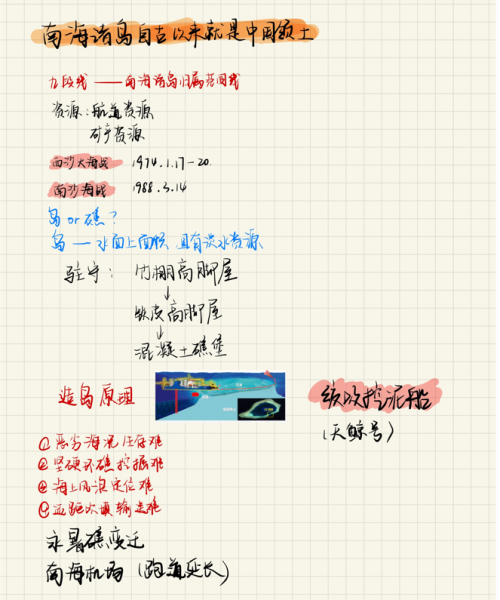 南海诸岛自古以来就是中国领土
九段线——南海诸岛归属范围线
资源：航道资源
矿产资源
西沙大海战 1974.1.17-20.
南沙海战 1988.3.14
岛or礁？
岛——水面上面积 且有淡水资源
驻守：竹棚高脚屋
↓
铁皮高脚屋
↓
混凝土礁堡
造岛原理
绞吸挖泥船
（天鲸号）
①恶劣海况生存难
②坚硬环礁挖掘难
③海上风浪定位难
④远距吹填输送难
永暑礁变迁
南海机场（跑道延长）